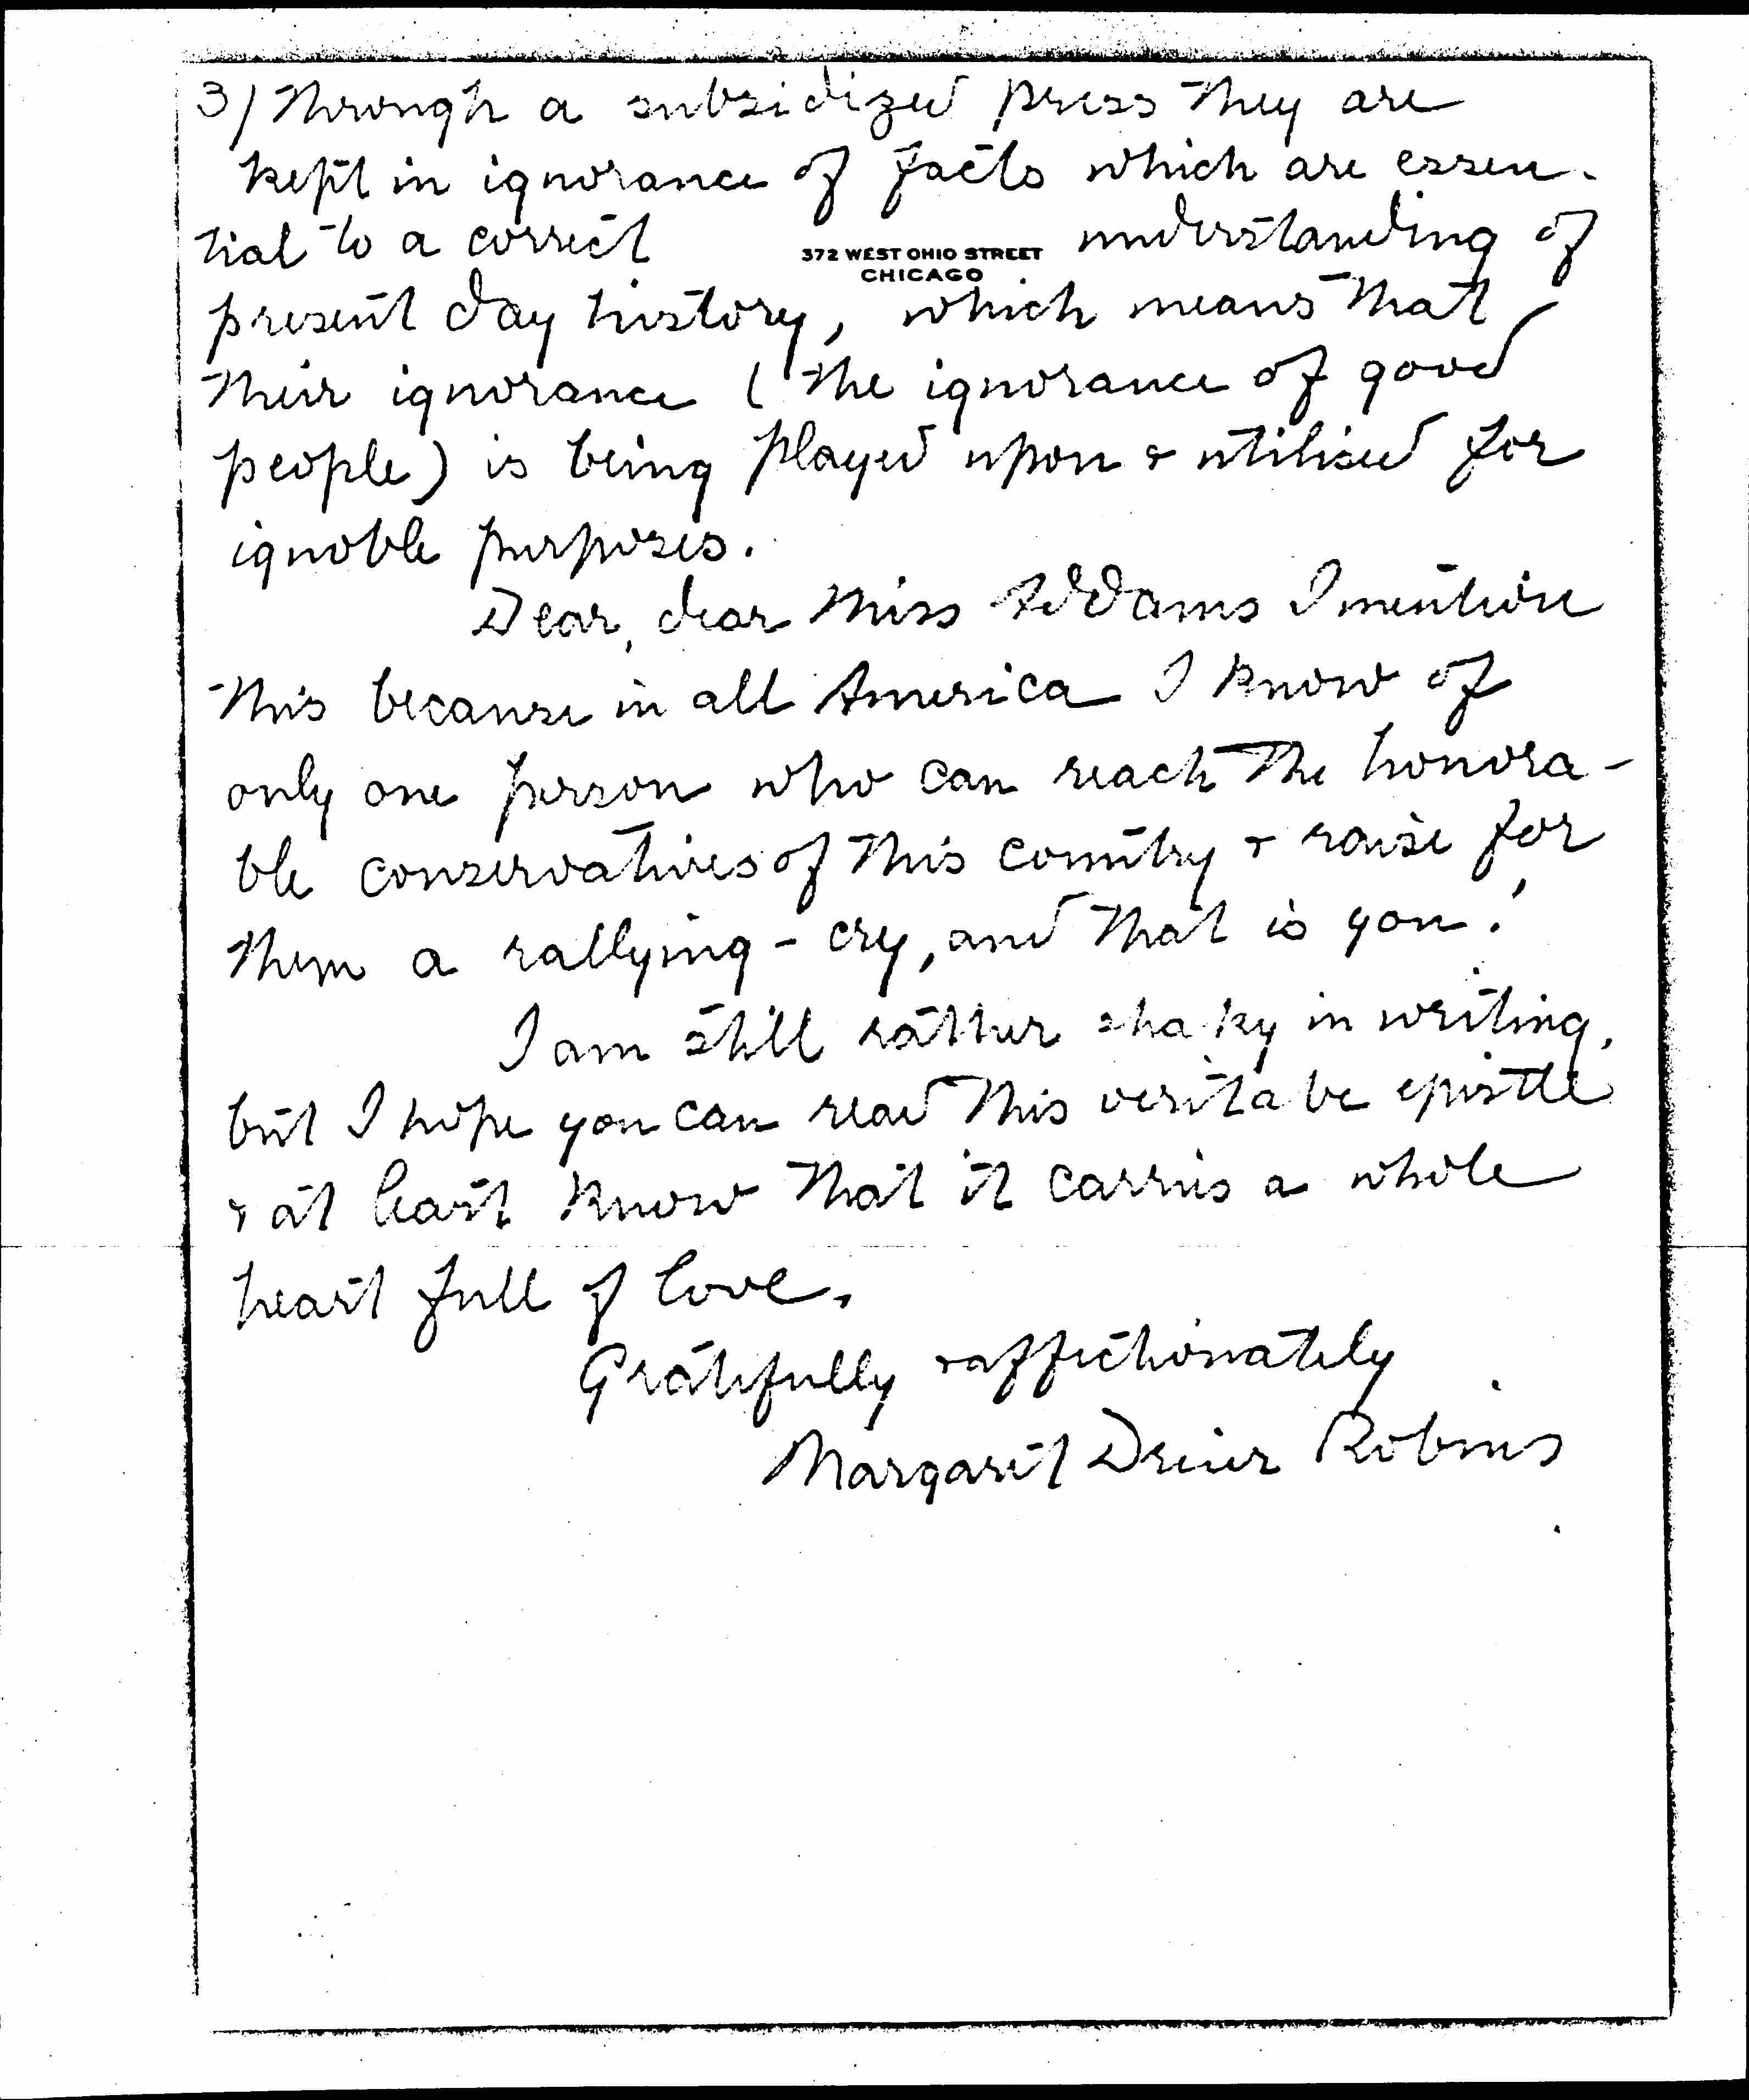 3) Through a subsidized press they are
kept in ignorance of facts which are essen-
tial to a correct understanding of
372 WEST OHIO STREET
CHICAGO
present day history, which means that
their ignorance (the ignorance of good
people) is being played upon & utilised for
ignoble purposes.
Dear, dear Miss Addams I mention
this because in all America I know of
only one person who can reach the honora-
ble conservatives of this country & raise for
them a rallying-cry, and that is you!
I am still rather shaky in writing,
but I hope you can read this veritabe epistle
& at least know that it carries a whole
heart full of love.
Gratefully & affectionately
Margaret Dreier Robins